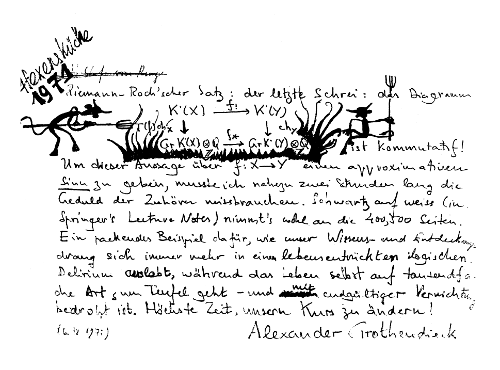 Hexenküche
1971
Riemann-Roch'scher Satz: der letzte Schrei: das Diagramm
K˙(X) →f! K˙(Y)
ch_Y
Gr K(X)⊗Q →f* Gr K(Y)⊗Q
ist kommutatif!
Um dieser Aussage über f: X → Y einen approximativen
Sinn zu geben, musste ich nahezu zwei Stunden lang die
Geduld der Zuhörer missbrauchen. Schwartz auf weiss (in
Springer's Lecture Notes) nimmt's wohl an die 400, 500 Seiten.
Ein packendes Beispiel dafür, wie unser Wissens- und Entdeckungs
drang sich immer mehr in einem lebensentrückten logischen
Delirium auslebt, während das Leben selbst auf tausendfa-
che Art zum Teufel geht - und mit endgültiger Vernichtung
bedroht ist. Höchste Zeit, unsern Kurs zu ändern!
Alexander Grothendieck